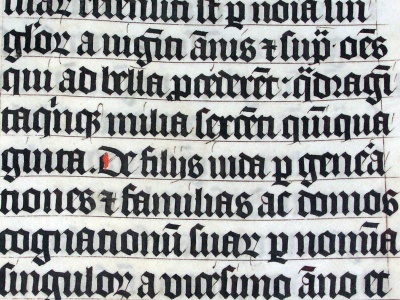 suaꝝ recensiti sūt ꝑ noīa sin
guloꝝ a uigīti ānis ⁊ sup̄· oēs
qui ad bella ꝓcederēt: q̄dragī
taqⁱnqꝫ milia sexcēti qīnqua
ginta. De filijs iuda ꝑ geneā
tiones ⁊ familias ac domos
cognationū suaꝝ ꝑ nomīa
singuloꝝ a vicesimo āno et